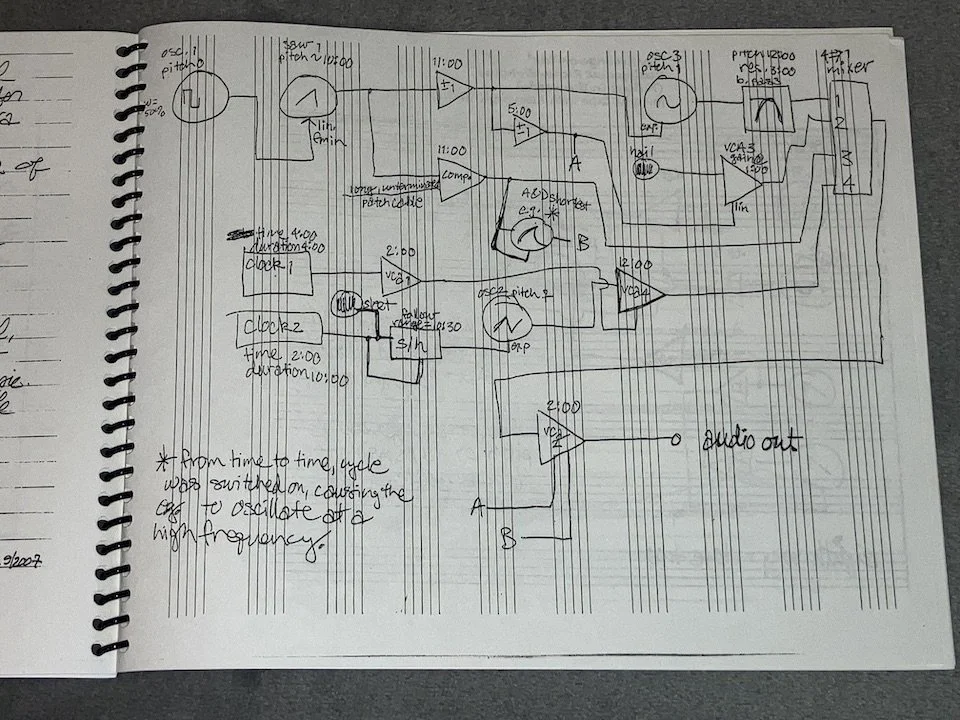 osc. 1
pitch 0
w=
50%
saw 1
pitch ~ 10:00
lin.
fmin
11:00
±1
5:00
±1
A
11:00
comp.
long, unterminated
patch cable
osc 3
pitch 1
exp.
pitch 12:00
res. 3:00
b. pass
4→1
mixer
1
2
3
4
hail
VCA3
gain @
1:00
lin
A&D shortest
e.g. *
B
time 4:00
duration 4:00
Clock 1
2:00
vca1
12:00
vca4
osc2 pitch 2
exp
Clock 2
time 2:00
duration 10:00
follow
range = 10:30
s/h
2:00
vca
2
audio out
A
B
* from time to time, cycle
was switched on, causing the
eg to oscillate at a
high frequency.
9/2007
of